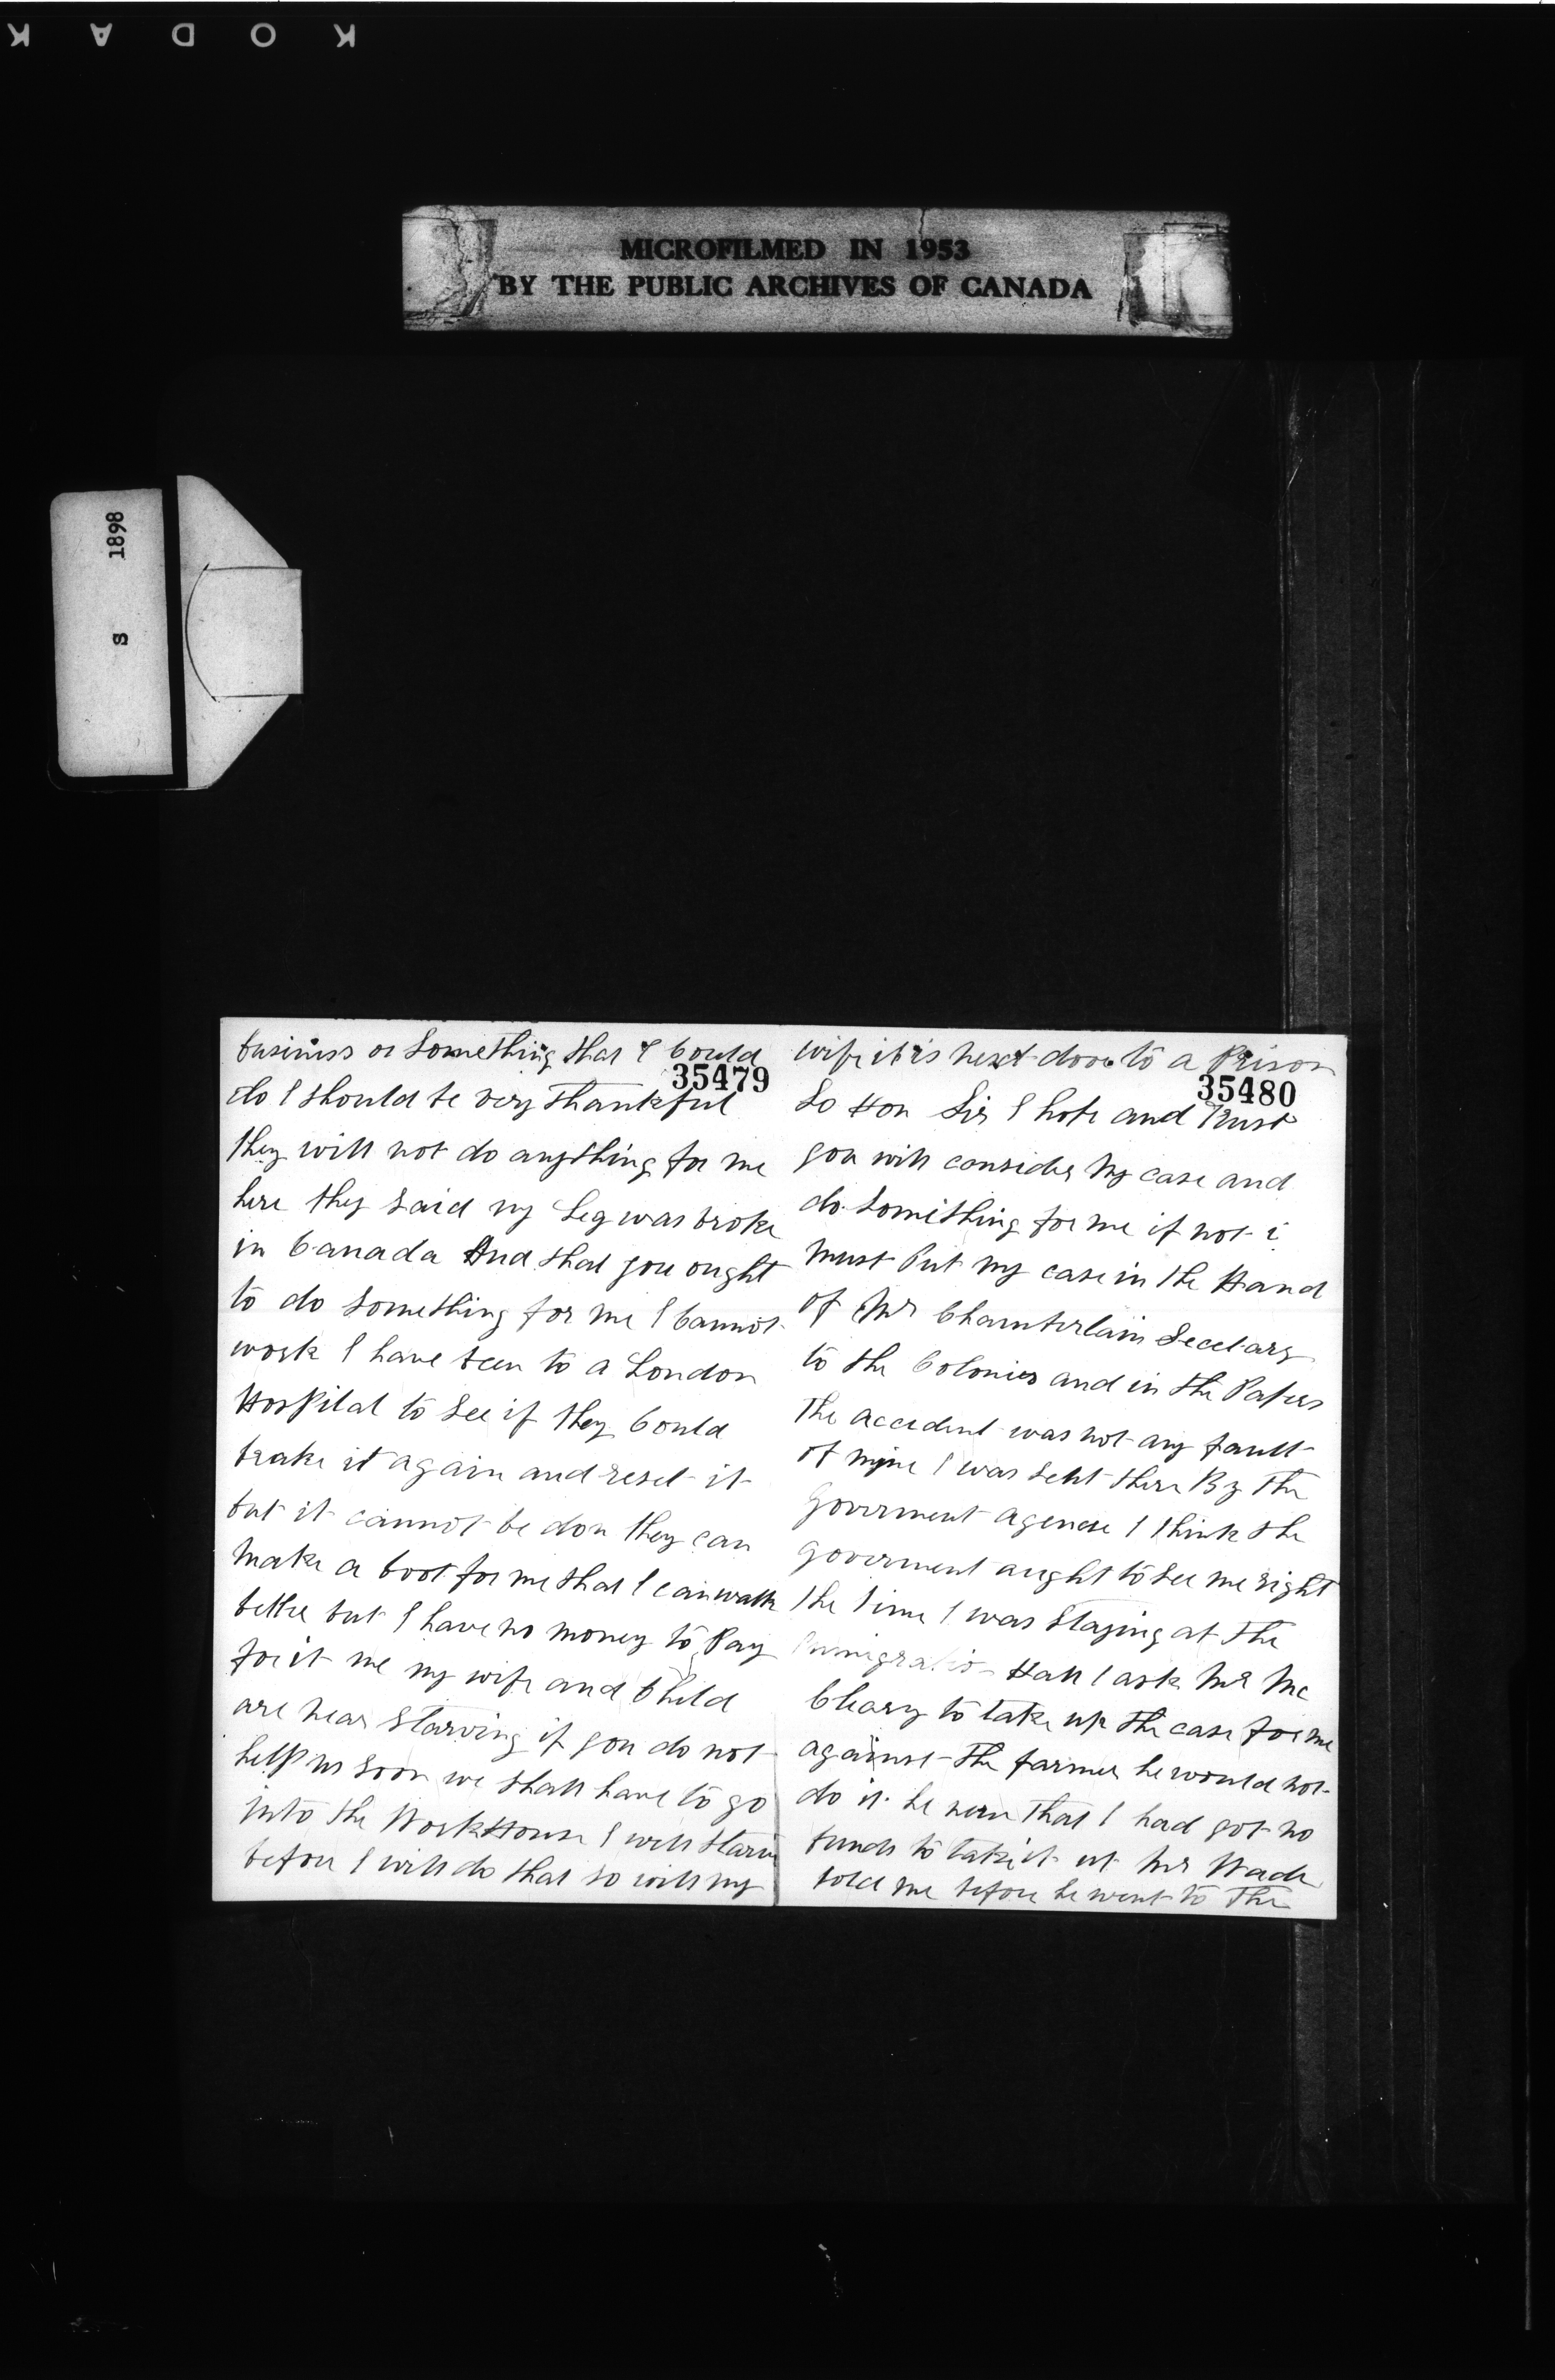 KODAK
MICROFILMED IN 1953
BY THE PUBLIC ARCHIVES OF CANADA
S 1898
business or Something that I Could
35479
do I should be very Thankful
they will not do anything for me
here they Said my Leg was broke
in Canada And that you ought
to do Something for me I Cannot
work I have been to a London
Hospital to See if they Could
brake it again and reset it
but it cannot be don they can
Make a boot for me that I can walk
better but I have no money to Pay
for it me my wife and Child
are near Starving if you do not
help us Soon we shall have to go
into the WorkHouse I will Starve
before I will do that so will my
wife it is next door to a Prison
35480
So Hon Sir I hope and Trust
you will consider My case and
do Something for me if not i
Must Put my case in the Hand
of Mr Chamberlain Secetary
to the Colonies and in the Papers
The accident was not any fault
of mine I was Sent there By The
Goverment agence I think the
Goverment aught to See me right
the Time I was Staying at the
Immigratio Hall I ask Mr Mc
Cleary to take up the case for me
against The farmer he would not
do it he new That I had got no
funds to take it up Mr Wade
told me before he went to The